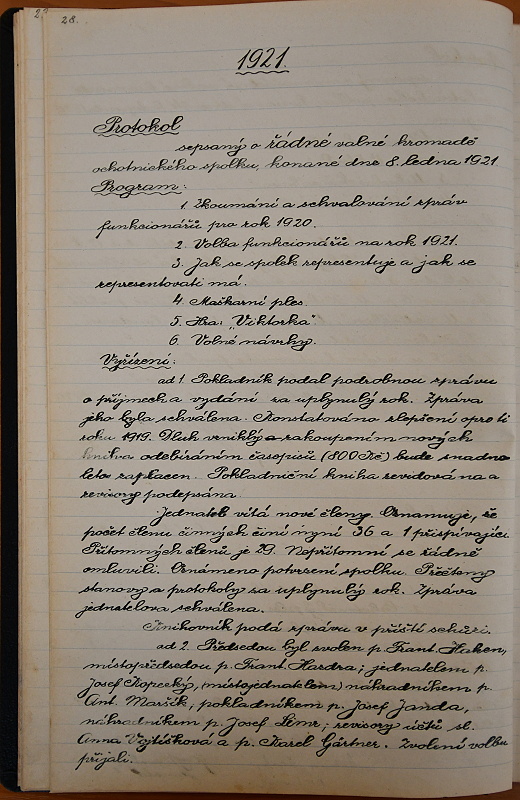 28.
1921.
Protokol
sepsaný o řádné valné hromadě
ochotnického spolku, konané dne 8. ledna 1921
Program:
1. Zkoumání a schvalování zpráv
funkcionářů pro rok 1920.
2. Volba funkcionářů na rok 1921.
3. Jak se spolek representuje a jak se
representovati má.
4. Maškarní ples.
5. Hra: "Viktorka"
6. Volné návrhy.
Vyřízení:
ad 1. Pokladník podal podrobnou zprávu
o příjmech a vydání za uplynulý rok. Zpráva
jeho byla schválena. Konstatováno zlepšení oproti
roku 1919. Dluh vzniklý zakoupením nových
knih a odebíráním časopisů (800 Kč) bude snadno
letos zaplacen. Pokladniční kniha revidována a
revisory podepsána.
Jednatel vítá nové členy. Oznamuje, že
počet členu činných činí nyní 36 a 1 přispívající.
Přítomných členů je 29. Nepřítomní se řádně
omluvili. Oznámeno potvrzení spolku. Přečteny
stanovy a protokoly za uplynulý rok. Zpráva
jednatelova schválena.
Knihovník podá zprávu v příští schůzi.
ad 2. Předsedou byl zvolen p. Frant. Haken,
místopředsedou p. Frant. Hasdra; jednatelem p.
Josef Kopecký, (místojednatelem) náhradníkem p.
Ant. Maršík; pokladníkem p. Josef Janda,
náhradníkem p. Josef ; revisory účtů sl.
Anna Vojtíšková a p. Karel Gärtner. Zvolení volbu
přijali.